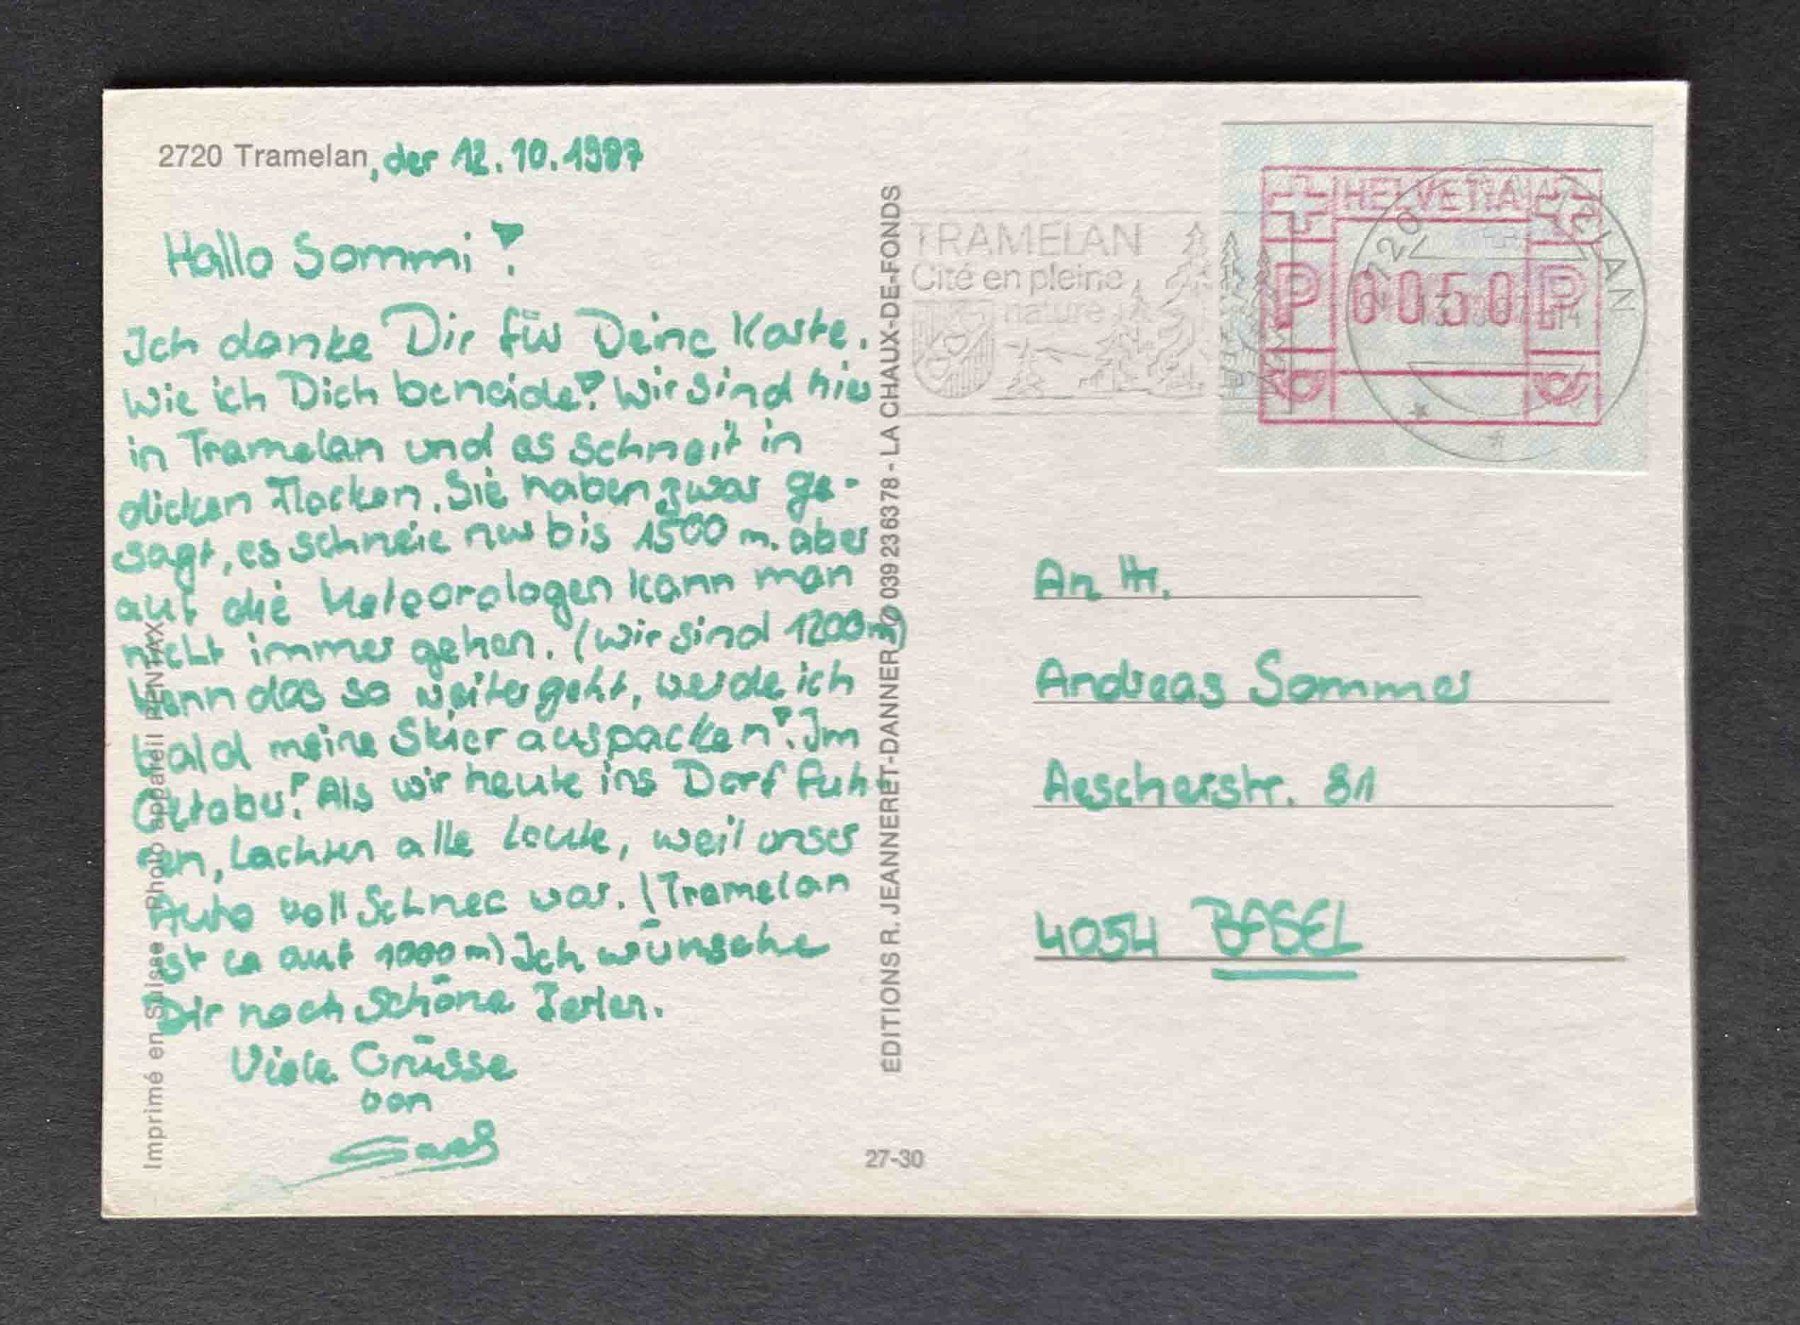 2720 Tramelan, der 12.10.1987
Hallo Sommi!
Ich danke Dir für Deine Karte.
Wie ich Dich beneide! Wir sind hier
in Tramelan und es schneit in
dicken Flocken. Sie haben zwar ge-
sagt, es schneie nur bis 1500 m. aber
auf die Meteorologen kann man
nicht immer gehen. (Wir sind 1200m)
Wenn das so weitergeht, werde ich
bald meine Skier auspacken! Im
Oktober! Als wir heute ins Dorf fuh-
ren, lachten alle Leute, weil unser
Auto voll Schnee war. (Tramelan
ist ca auf 1000 m) Ich wünsche
Dir noch schöne Ferien.
Viele Grüsse
von
Imprimé en Suisse Photo appareil PENTAX
EDITIONS R. JEANNERET-DANNER ∅ 039 23 63 78 - LA CHAUX-DE-FONDS
27-30
TRAMELAN
Cité en pleine
nature
HELVETIA
P 0050 P
An Hr.
Andreas Sommer
Aescherstr. 81
4054 BASEL